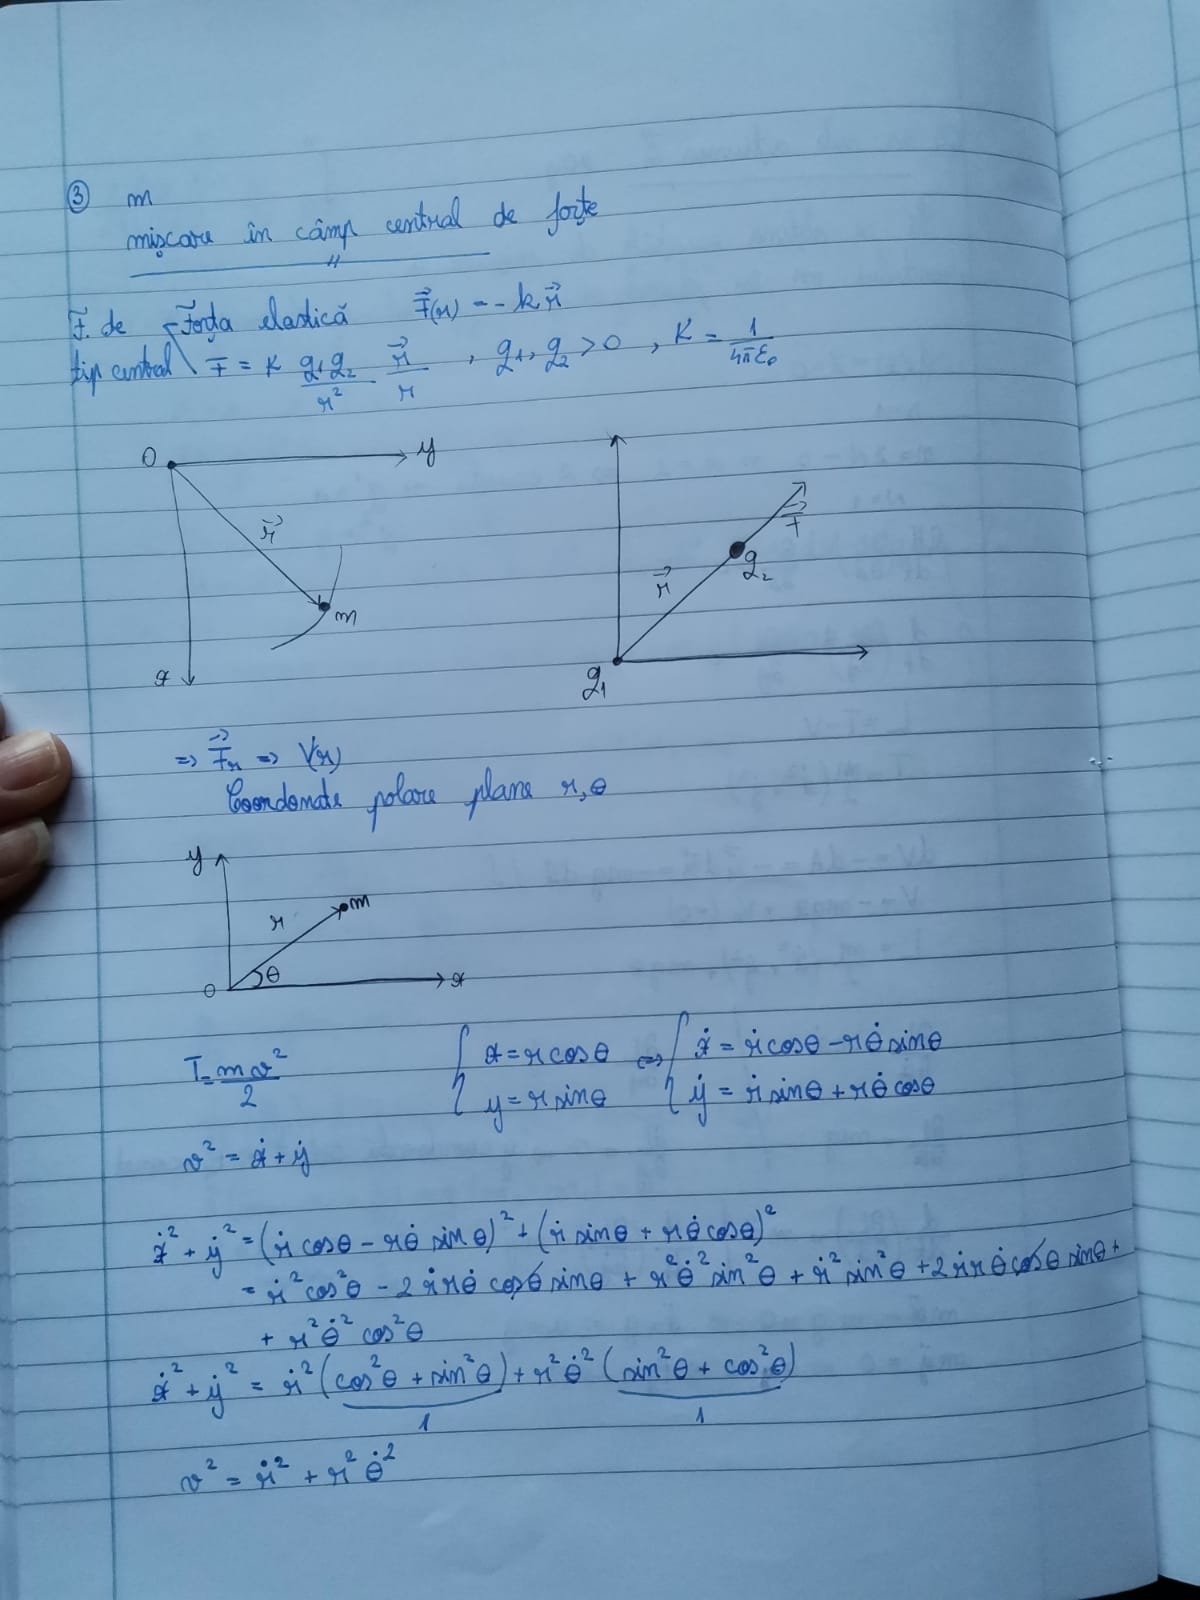 ③ m
mișcare în câmp central de forțe
F. de - Forța elastică F⃗(r) = - k r⃗
tip central \ F = K q₁ q₂ / r² r⃗ / r , q₁, q₂ > 0 , K = 1 / 4πε₀
O y
r⃗ F⃗
r⃗ q₂
m
x q₁
=> F⃗r => V(r)
Coordonate polare plane r, θ
y
r m
O θ x
T = m v² / 2 { x = r cos θ <=> { ẋ = ṙ cos θ - r θ̇ sin θ
{ y = r sin θ { ẏ = ṙ sin θ + r θ̇ cos θ
v² = ẋ + ẏ
ẋ² + ẏ² = (ṙ cos θ - r θ̇ sin θ)² + (ṙ sin θ + r θ̇ cos θ)²
= ṙ² cos² θ - 2 ṙ r θ̇ cos θ sin θ + r² θ̇² sin² θ + ṙ² sin² θ + 2 ṙ r θ̇ cos θ sin θ +
+ r² θ̇² cos² θ
ẋ² + ẏ² = ṙ² (cos² θ + sin² θ) + r² θ̇² (sin² θ + cos² θ)
1 1
v² = ṙ² + r² θ̇²